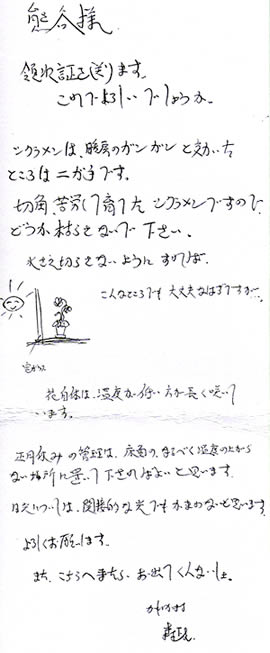 熊谷様
領収証を送ります。
これでよろしいでしょうか。
シクラメンは、暖房のガンガンと効いた
ところはニガ手です。
切角、苦労して育てた シクラメンですので、
どうか枯らせないで下さい。
水さえ切らせないように すれば、
こんなところでも 大丈夫なはずですが…
窓ガラス
花自体は、温度が低い方が長く咲いて
います。
正月休みの管理は、床面の、なるべく温度の上がら
ない場所に置いて下さればよいと思います。
日光については、間接的な光でもかまわないと思います
よろしくお願いします。
また、こちらへ来たら、お出てくんないしょ。